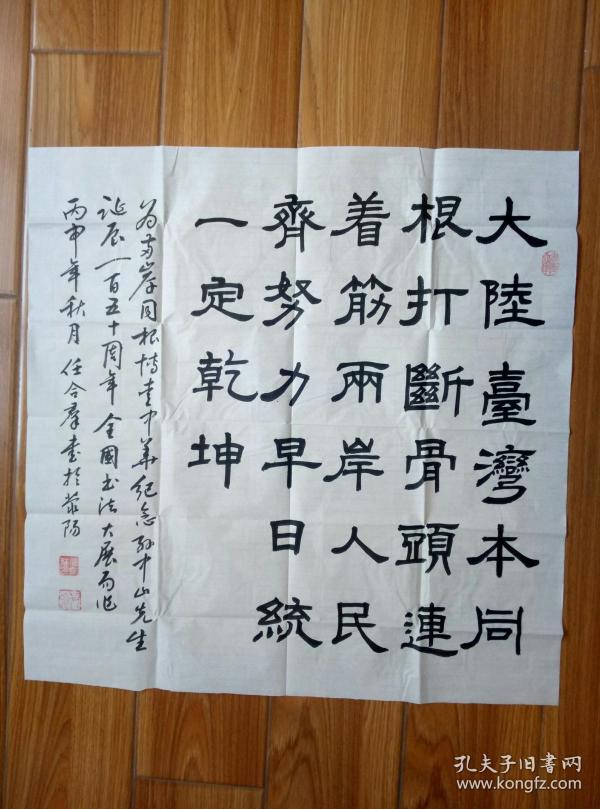 大陸臺灣本同
根打斷骨頭連
着筋兩岸人民
齊努力早日統
一定乾坤
為両岸同根情查中華紀念孙中山先生
誕辰一百五十周年全國书法大展而作
丙申年秋月任合群書於荥陽
孔夫子旧書网
www.kongfz.com